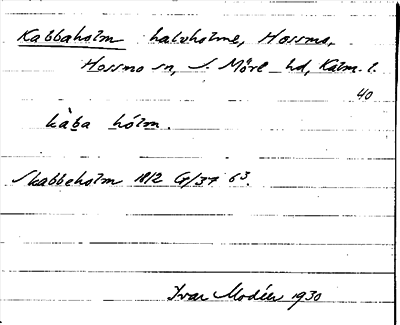 Kabbaholm halvholme, Hossmo,
Hossmo sn, S. Möre hd, Kalm. l.
40
kàba hólm.
Skabbeholm 1812 G/37 63.
Ivar Modéer 1930